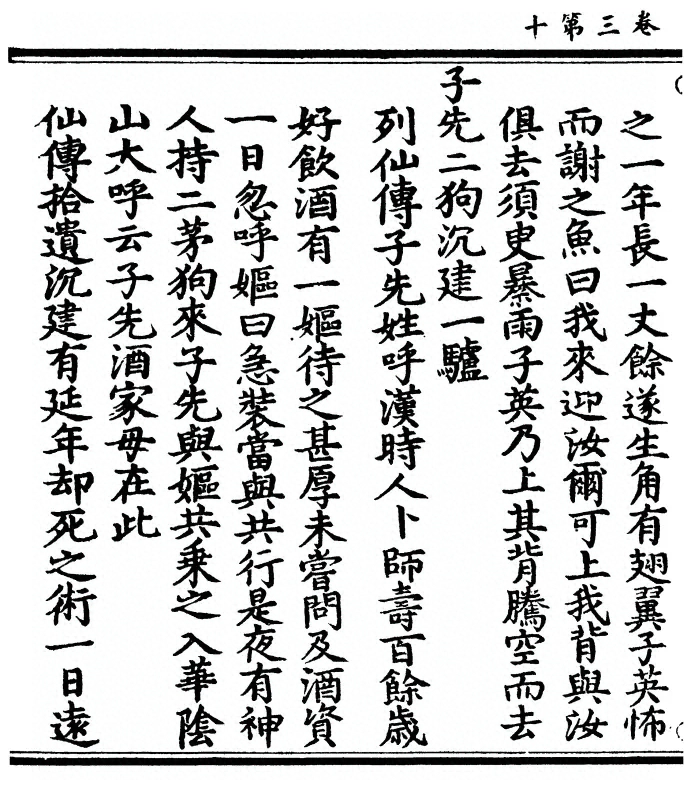 卷三第十
之一年長一丈餘遂生角有翅翼子英怖
而謝之魚曰我來迎汝爾可上我背與汝
俱去須臾暴雨子英乃上其背騰空而去
子先二狗沉建一驢
列仙傳子先姓呼漢時人卜師壽百餘歲
好飲酒有一嫗待之甚厚未嘗問及酒資
一日忽呼嫗曰急裝當與共行是夜有神
人持二茅狗來子先與嫗共乘之入華陰
山大呼云子先酒家母在此
仙傳拾遺沉建有延年却死之術一日遠